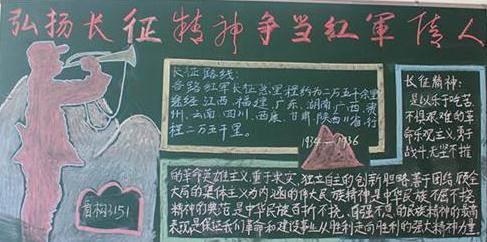 弘扬长征精神争当红軍传人
长征路线:
各路红军长征总里程约为二万五千余里
途经江西、福建、广东、湖南、广西、贵
州、云南、四川、西康、甘肃、陕西11省,行
程二万五千里。
1934—1936
长征精神:
是以乐于吃苦,
不惧艰难的革
命乐观主义;勇于
战斗,无坚不摧
的革命英雄主义;重于求实,独立自主的创新胆略;善于团结,顾全
大局的集体主义为内涵的伟大民族精神,是中华民族不屈不挠
精神的典范,是中华民族百折不挠、自强不息的民族精神的最高
表现,是保证我们革命和建设事业从胜利走向胜利的强大精神力量
看构3151